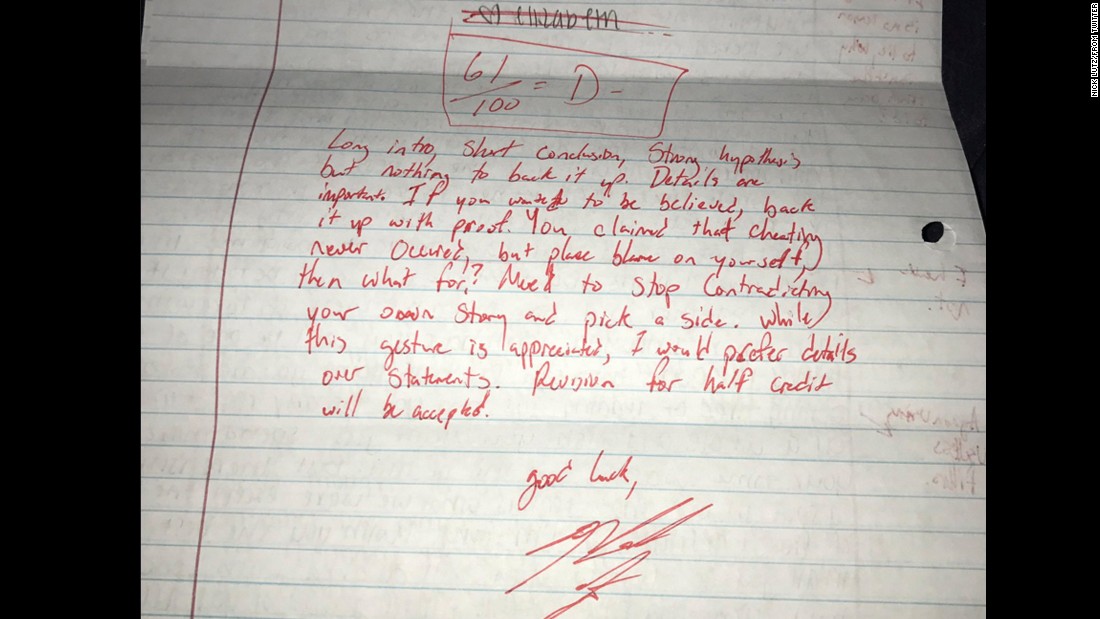 61
100 = D-
Long intro, short conclusion, strong hypothesis
but nothing to back it up. Details are
important. If you wanted to be believed, back
it up with proof. You claimed that cheating
never occured, but place blame on yourself,
then what for? Need to stop contradicting
your own story and pick a side. While
this gesture is appreciated, I would prefer details
over statements. Revision for half credit
will be accepted.
good luck,
NICK LUTZ/FROM TWITTER